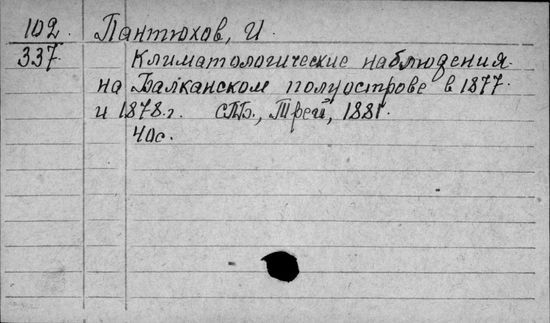 102. Пантюхов, И.
337. Климатологические наблюдения
на Балканском полуострове в 1877.
и 1878.г. СПБ., Трей, 1881.
40с.